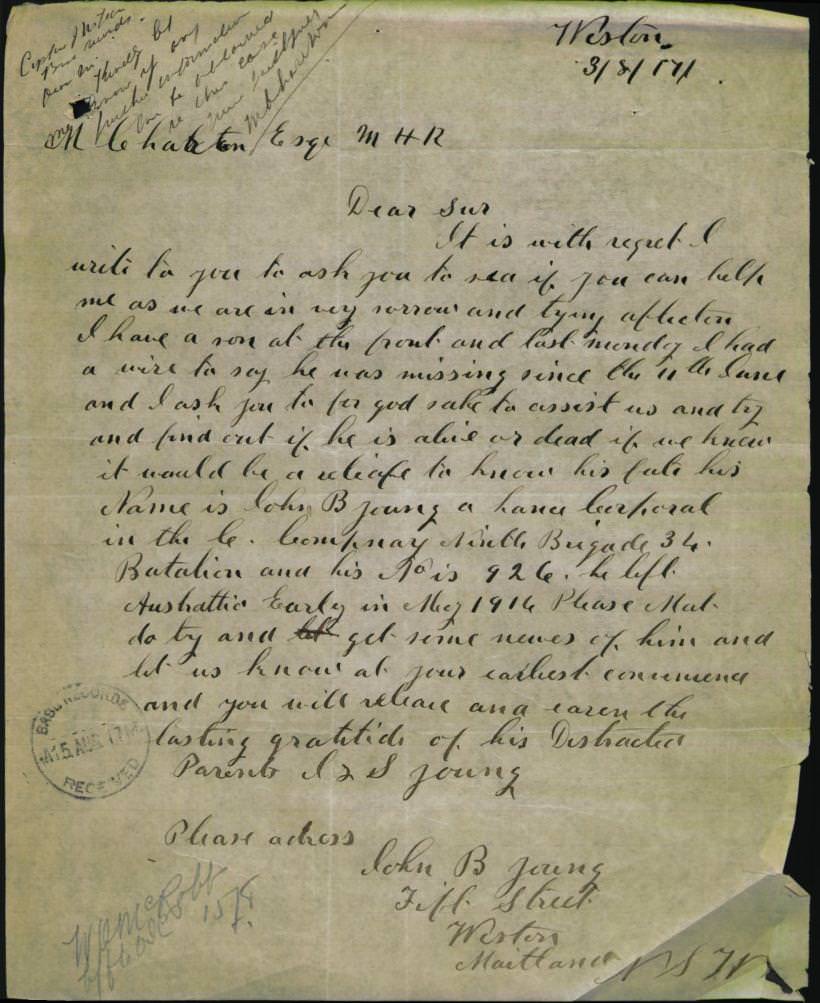 Weston
3/8/17
M Charlton Esqr M H R
Dear Sur
It is with regret I
write to you to ask you to sea if you can help
me as we are in very sorrow and tying aflection
I have a son at the front and last monday I had
a wire to say he was missing since the 11th June
and I ask you to for god sake to assist us and try
and find out if he is alive or dead if we knew
it would be a reliafe to know his fate his
Name is John B Young a Lance Corporal
in the C. Compnay Ninth Brigade 34.
Batalion and his No is 926. he left
Australia Early in May 1916 Please Mat
do try and get some newes of him and
let us know at your earliest convinience
and you will releave and earen the
lasting gratitide of his Distracted
Parents J & S Young
Please adress
John B Young
Fift Street
Weston
Maitland N S W
Kindly let
me know if any
further information
can be obtained
re this case
M Charlton
BASE RECORDS
15 AUG 17
RECEIVED
15/8